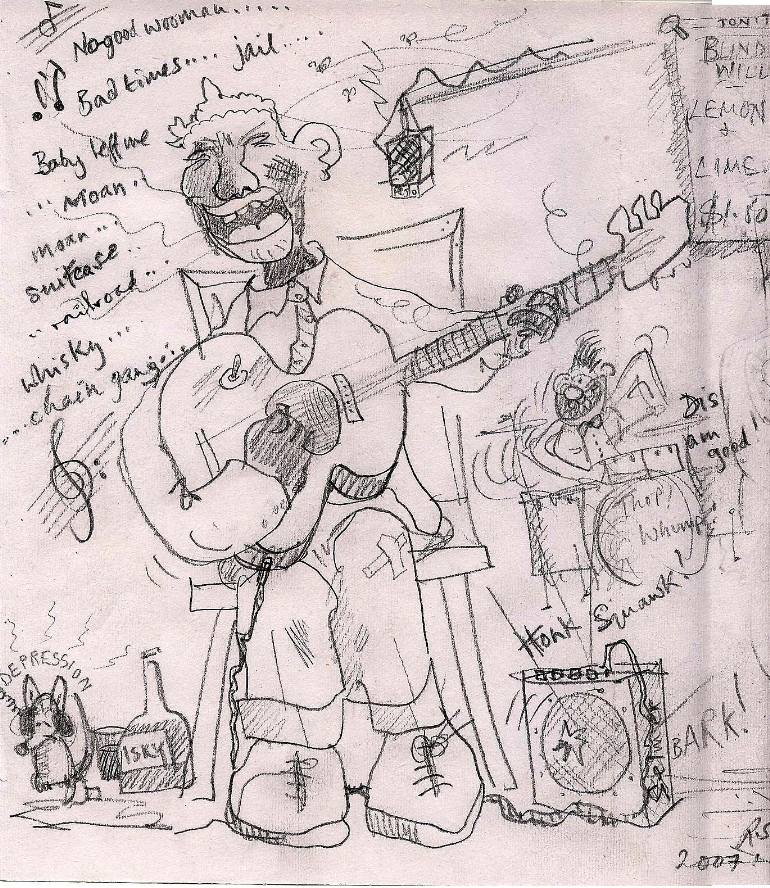 Nogood wooman.....
Badtimes.... jail.....
Baby leff me
... Moan..
moan...
suitcase..
.. railroad...
whisky...
...chain gang...
TONIT
BLIND
WILL
LEMON
+
LIME.
$1.50
Dis
am
good!
Thop!
Whump!
Honk Squawk!
DEPRESSION
ISKY
BARK!
2007.